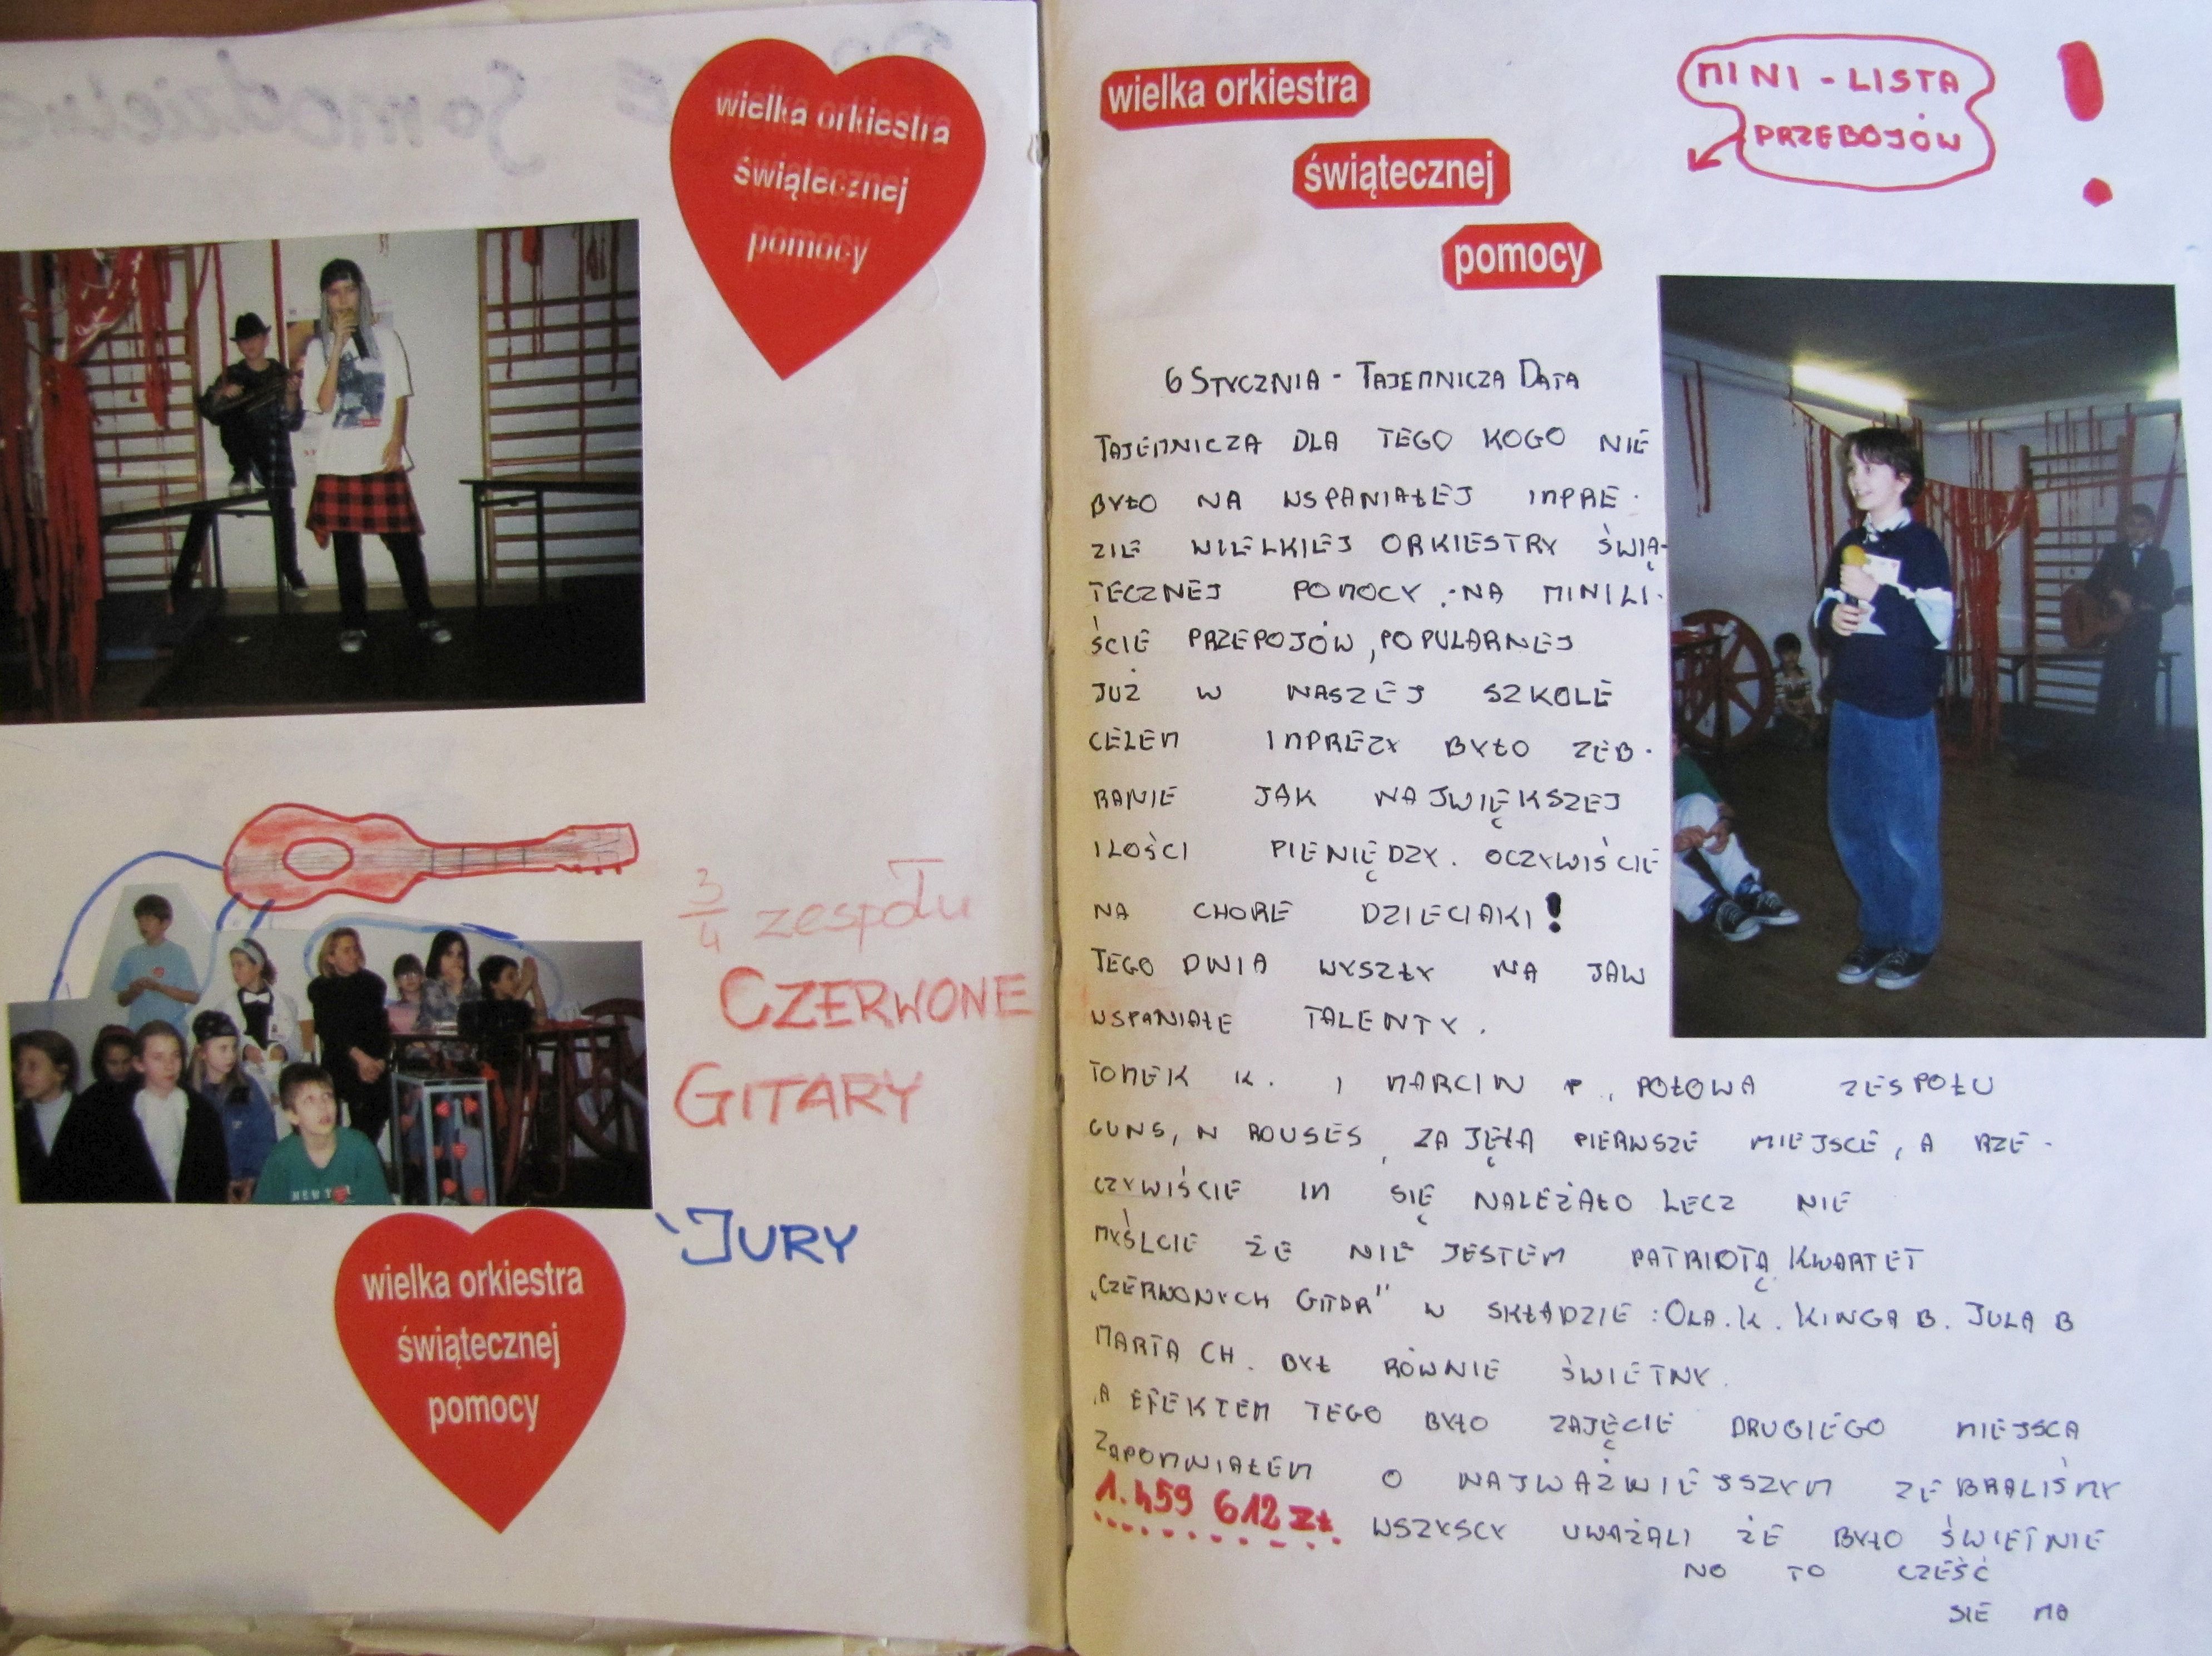 wielka orkiestra
świątecznej
pomocy
3/4 zespołu
CZERWONE
GITARY
JURY
NEW Y
wielka orkiestra
świątecznej
pomocy
wielka orkiestra
świątecznej
pomocy
MINI - LISTA
PRZEBOJÓW
!
6 STYCZNIA - TAJEMNICZA DATA
TAJEMNICZA DLA TEGO KOGO NIE
BYŁO NA WSPANIAŁEJ IMPRE-
ZIE WIELKIEJ ORKIESTRY ŚWIĄ-
TECZNEJ POMOCY :-NA MINILI-
ŚCIE PRZEPOJÓW, POPULARNEJ
JUŻ W NASZEJ SZKOLE
CELEM IMPREZY BYŁO ZEB-
RANIE JAK NAJWIĘKSZEJ
ILOŚCI PIENIĘDZY. OCZYWIŚCIE
NA CHORE DZIECIAKI!
TEGO DNIA WYSZŁY NA JAW
WSPANIAŁE TALENTY.
TOMEK K. I MARCIN P., POŁOWA ZESPOŁU
GUNS, N ROUSES, ZAJĘŁA PIERWSZE MIEJSCE, A RZE-
CZYWIŚCIE IM SIĘ NALEŻAŁO LECZ NIE
MYŚLCIE ŻE NIE JESTEM PATRIOTĄ KWARTET
„CZERWONYCH GITAR" W SKŁADZIE: OLA.K. KINGA B. JULA B
MARTA CH. BYŁ RÓWNIE ŚWIETNY.
A EFEKTEM TEGO BYŁO ZAJĘCIE DRUGIEGO MIEJSCA
ZAPOMNIAŁEM O NAJWAŻNIEJSZYM ZEBRALIŚMY
1.459 612 ZŁ WSZYSCY UWAŻALI ŻE BYŁO ŚWIETNIE
NO TO CZEŚĆ
SIE MA